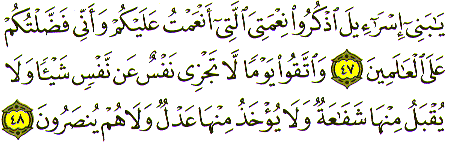 يَٰبَنِىٓ إِسْرَٰٓءِيلَ ٱذْكُرُوا۟ نِعْمَتِىَ ٱلَّتِىٓ أَنْعَمْتُ عَلَيْكُمْ وَأَنِّى فَضَّلْتُكُمْ
عَلَى ٱلْعَٰلَمِينَ ٤٧ وَٱتَّقُوا۟ يَوْمًا لَّا تَجْزِى نَفْسٌ عَن نَّفْسٍ شَيْـًٔا وَلَا
يُقْبَلُ مِنْهَا شَفَٰعَةٌ وَلَا يُؤْخَذُ مِنْهَا عَدْلٌ وَلَا هُمْ يُنصَرُونَ ٤٨